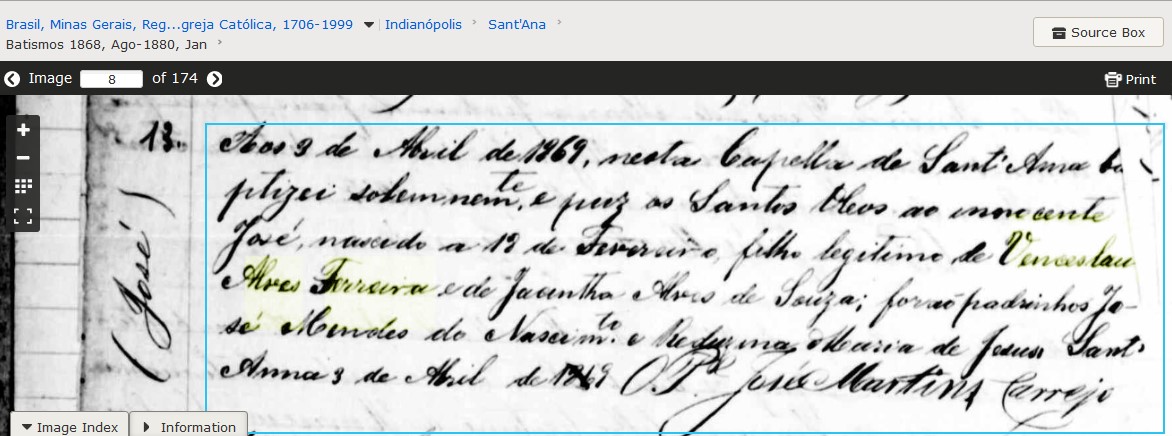 Brasil, Minas Gerais, Reg...greja Católica, 1706-1999 Indianópolis Sant'Ana
Batismos 1868, Ago-1880, Jan
Source Box
Image 8 of 174
Print
13.
(José)
Aos 3 de Abril de 1869, nesta Capella de Sant'Anna ba
ptizei solemnemte, e puz os Santos Oleos ao innocente
José, nascido a 12 de Fevereiro, filho legitimo de Venceslau
Alves Ferreira e de Jacintha Alves de Souza; forão padrinhos Jo-
sé Mendes do Nascimto. e Maria de Jesus Sant'
Anna 3 de Abril de 1869 O Pe. José Martins Carrejo
Image Index
Information